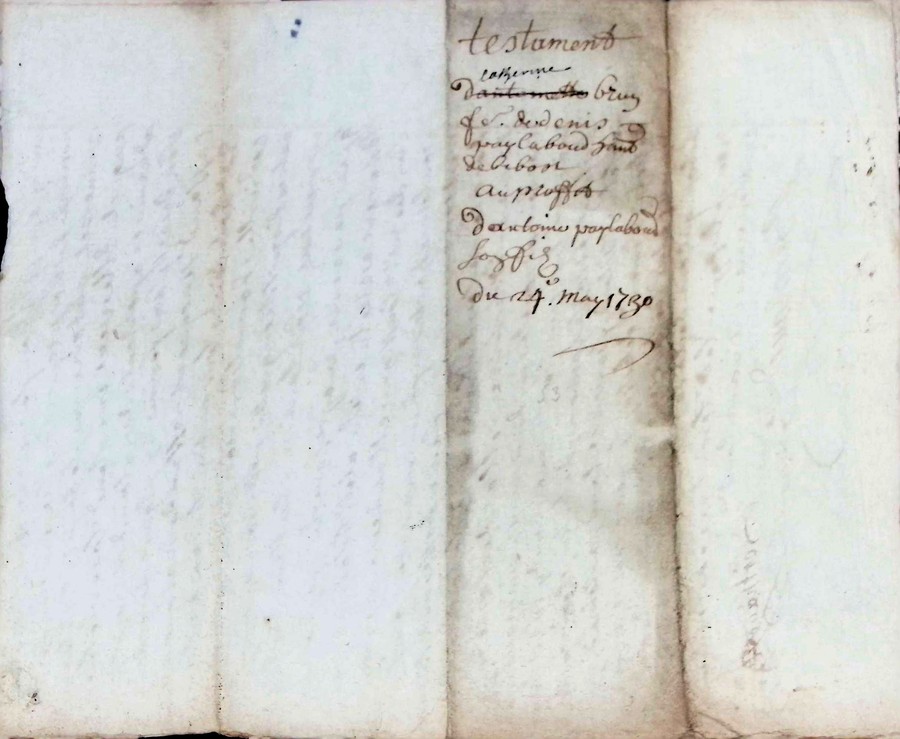 testament
catherine
dantoinette brun
fe. de denis
paylaboud hant
de libost
au proffit
dantoine paylaboud
son fils
du 24e. may 1730